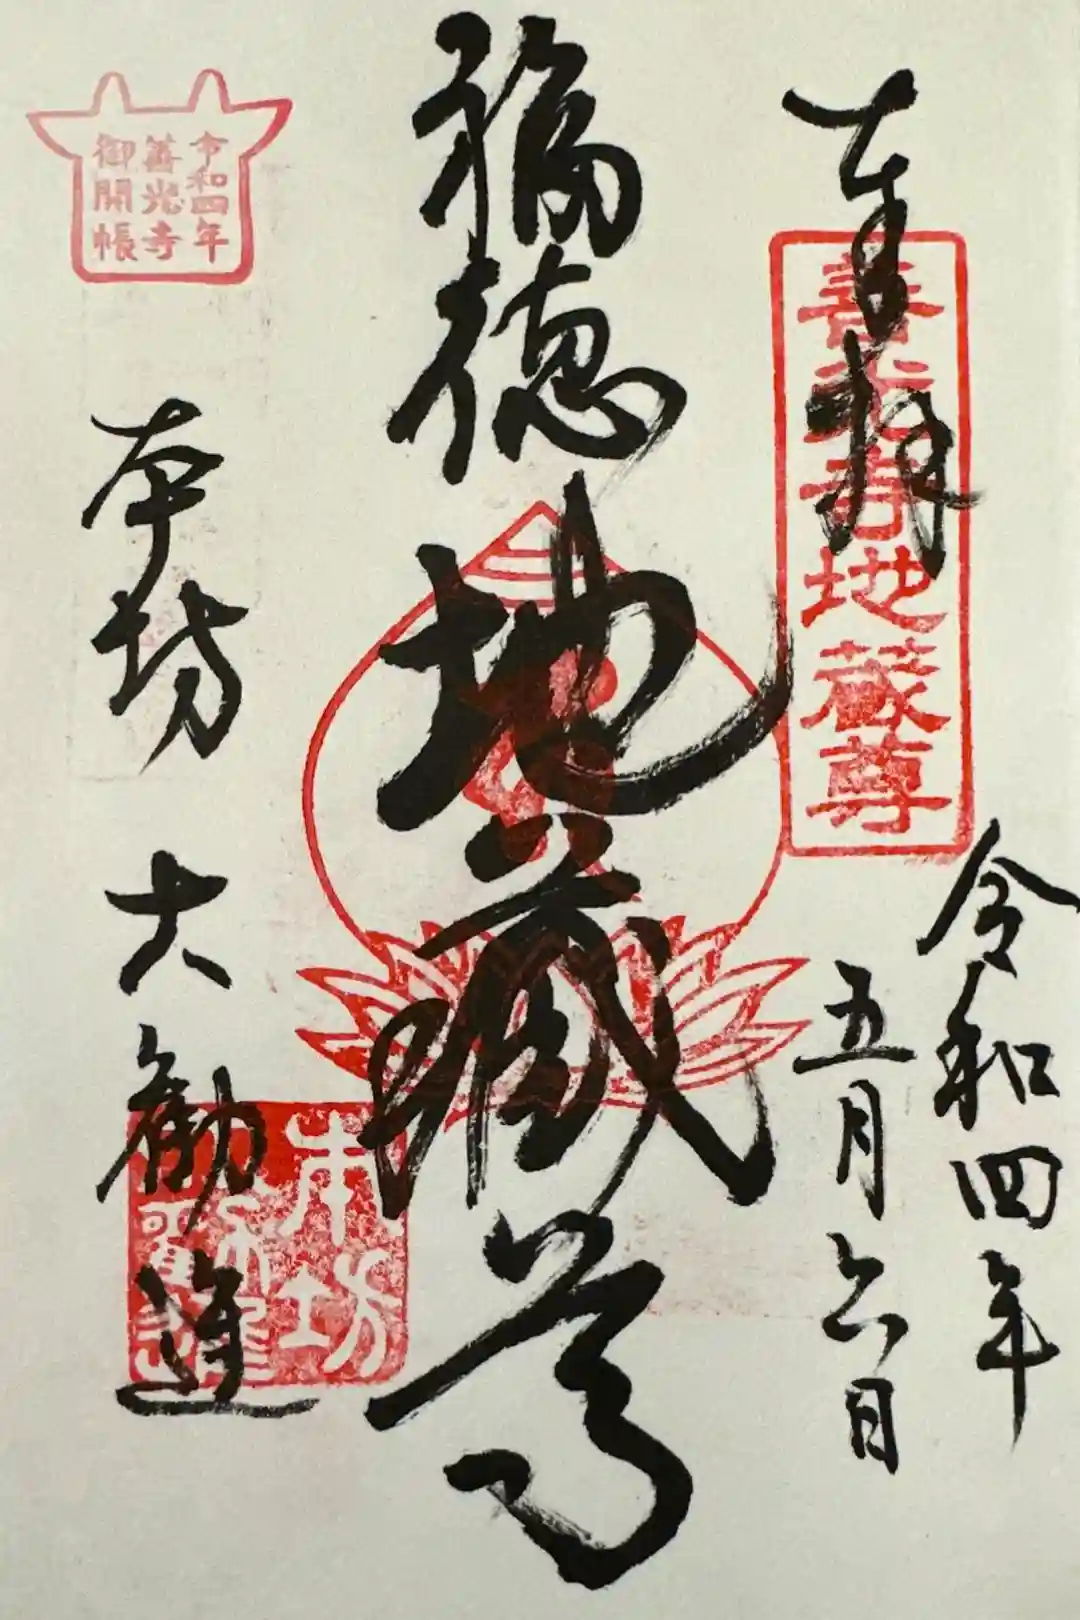 奉拝
善光寺地蔵尊
令和四年
五月六日
福徳
地蔵尊
令和四年
善光寺
御開帳
本坊
大勧進
本坊